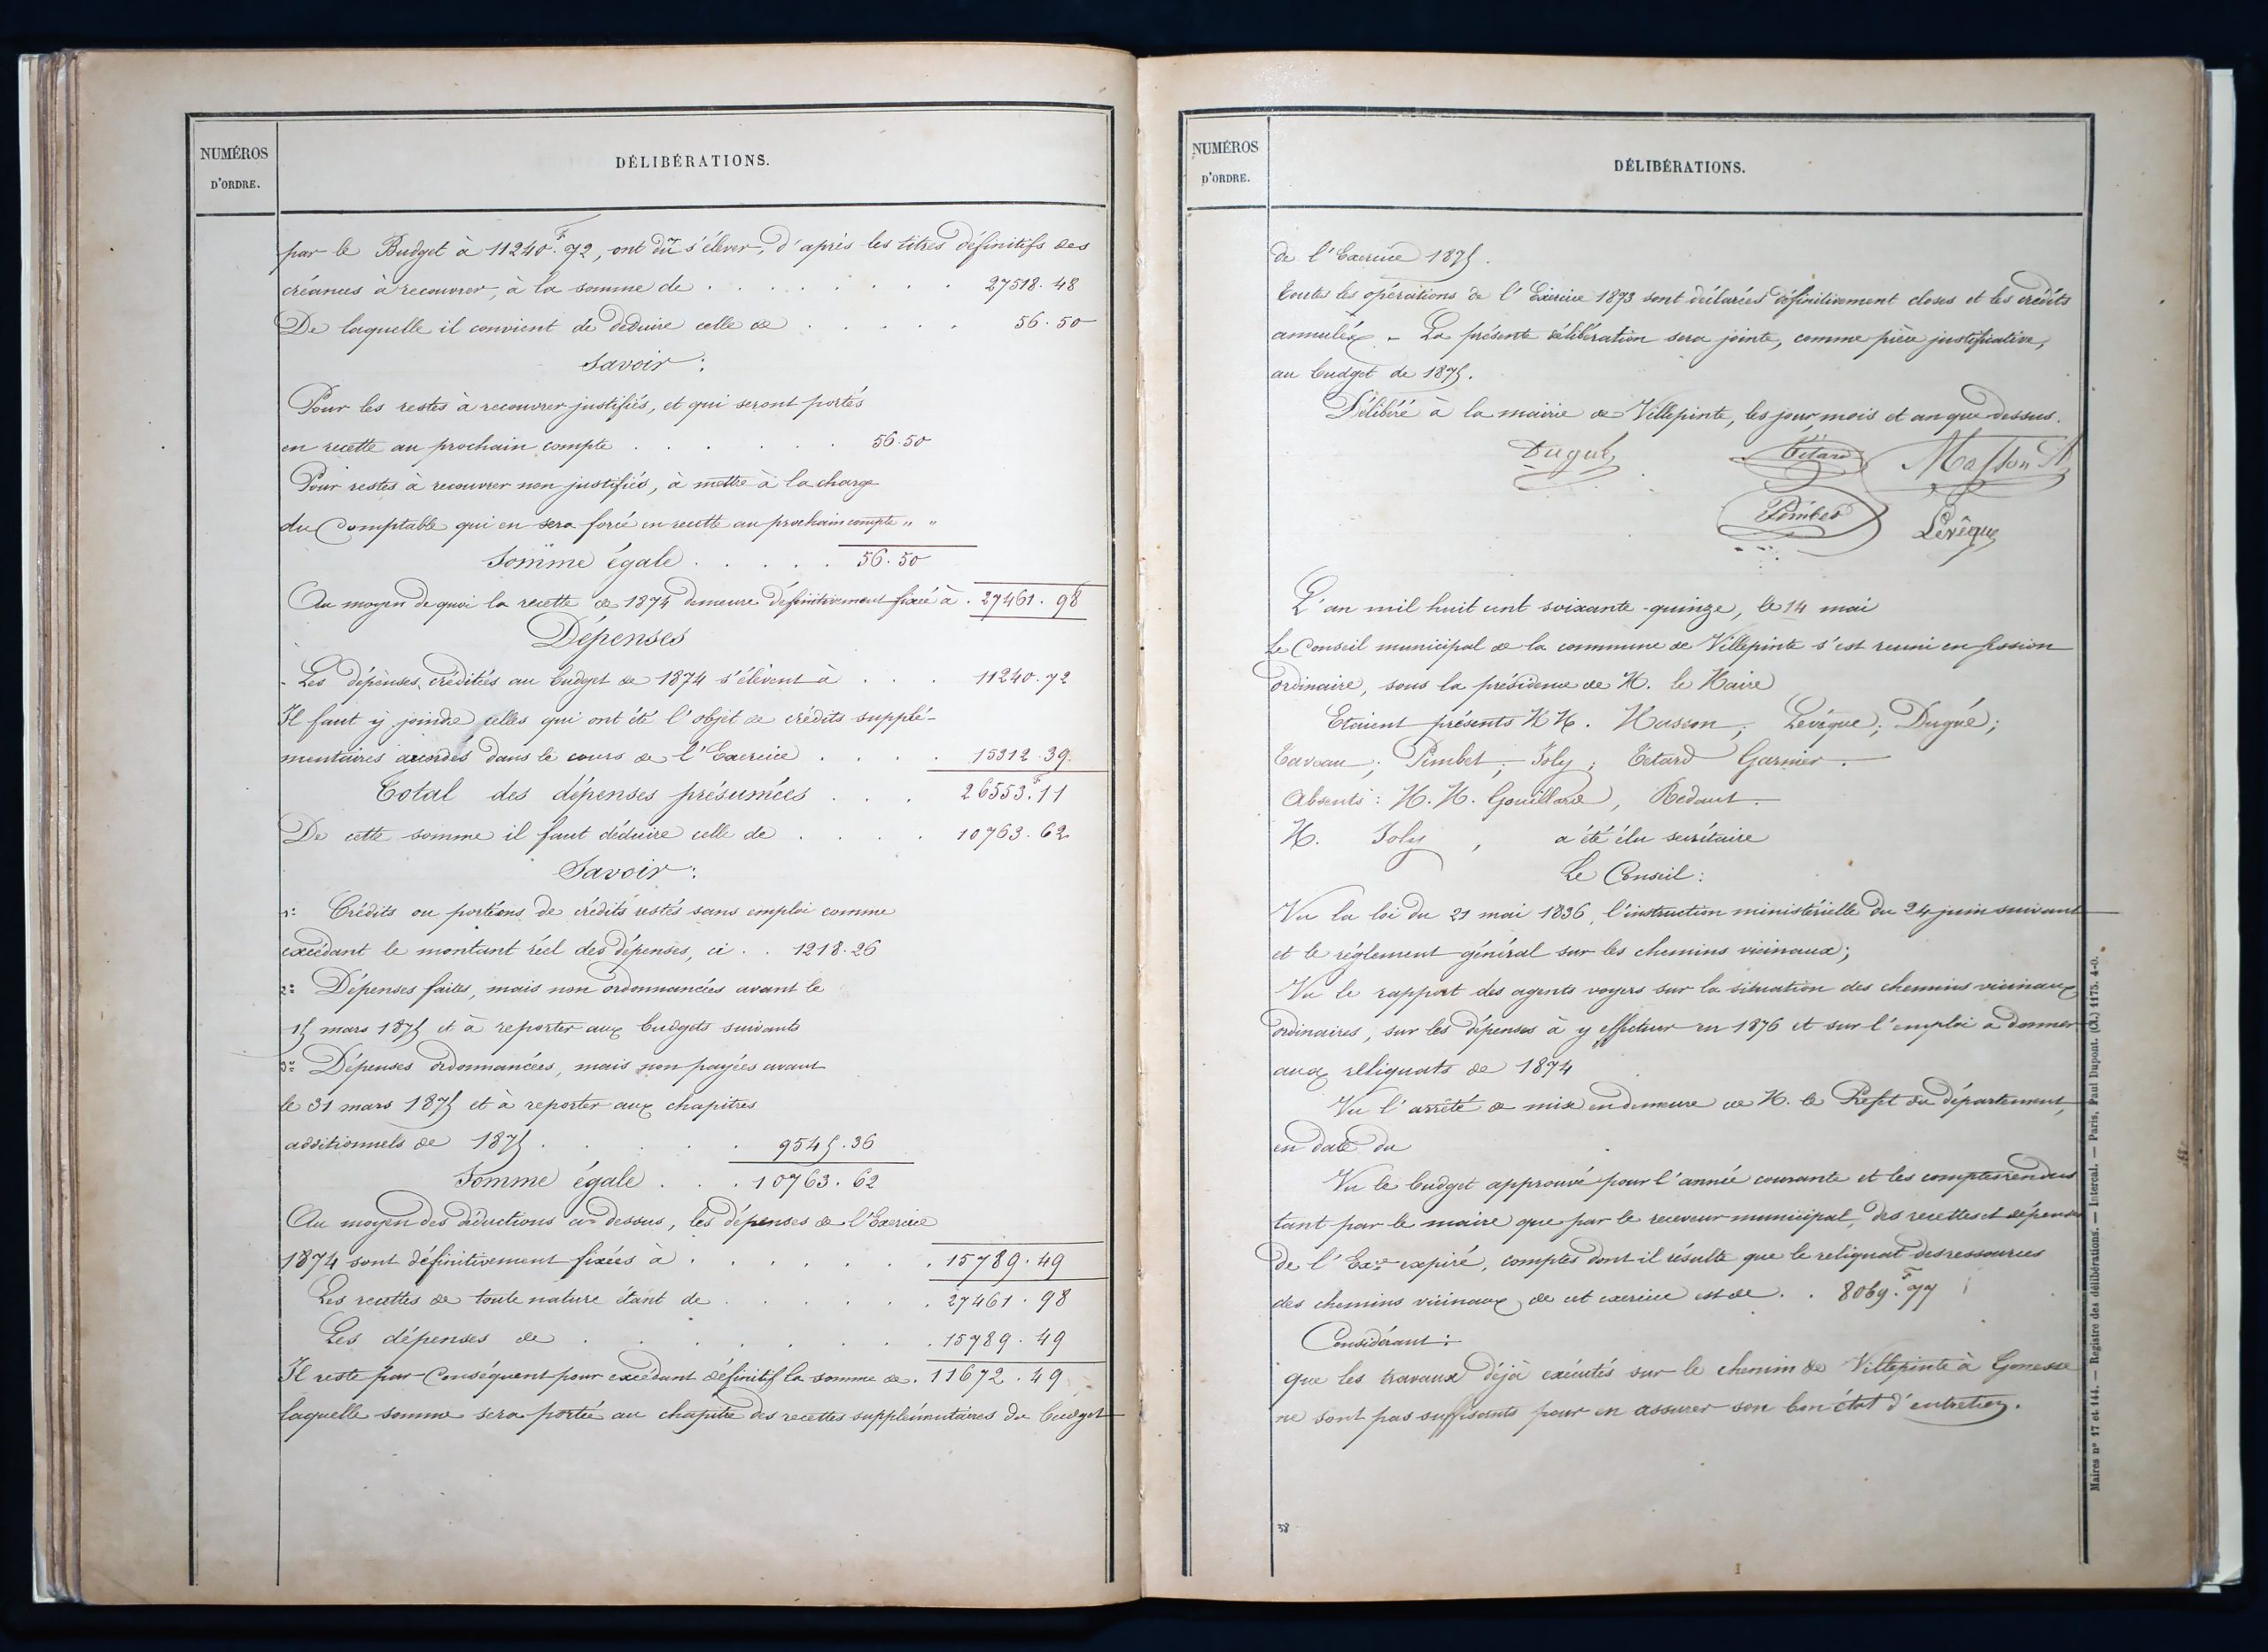 NUMÉROS
D'ORDRE.
DÉLIBÉRATIONS.
par le Budget à 11240.F 72, ont dû s'élever, d'après les titres définitifs des
créances à recouvrer, à la somme de . . . . . . . . 27518.48
De laquelle il convient de déduire celle de . . . . . 56.50
Savoir :
Pour les restes à recouvrer justifiés, et qui seront portés
en recette au prochain compte . . . . . . 56.50
Pour restes à recouvrer non justifiés, à mettre à la charge
du Comptable qui en sera forcé en recette au prochain compte " "
Somme égale . . . . . 56.50
Au moyen de quoi la recette de 1874 demeure définitivement fixée à . 27461.98
Dépenses
Les dépenses créditées au budget de 1874 s'élèvent à . . . 11240.72
Il faut y joindre celles qui ont été l'objet de crédits supplé-
mentaires accordés dans le cours de l'Exercice . . . . 15312.39
Total des dépenses présumées . . . 26553.F 11
De cette somme il faut déduire celle de . . . . 10763.62
Savoir :
1º Crédits ou portions de crédits restés sans emploi comme
excédant le montant réel des dépenses, ci . . 1218.26
2º Dépenses faites, mais non ordonnancées avant le
15 mars 1875 et à reporter aux budgets suivants
3º Dépenses ordonnancées, mais non payées avant
le 31 mars 1875 et à reporter aux chapitres
additionnels de 1875 . . . . . 9545.36
Somme égale . . . 10763.62
Au moyen des déductions ci-dessus, les dépenses de l'Exercice
1874 sont définitivement fixées à . . . . . . . 15789.49
Les recettes de toute nature étant de . . . . . . 27461.98
Les dépenses de . . . . . . . 15789.49
Il reste par Conséquent pour excédant définitif la somme de . 11672.49
laquelle somme sera portée au chapitre des recettes supplémentaires du budget
NUMÉROS
D'ORDRE.
DÉLIBÉRATIONS.
de l'Exercice 1875.
toutes les opérations de l'Exercice 1873 sont déclarées définitivement closes et les crédits
annulés - La présente délibération sera jointe, comme pièce justificative,
au budget de 1875.
Délibéré à la mairie de Villepinte, les jour, mois et an que dessus.
Dugué Tétard Masson
Pimbet Levêque
L'an mil huit cent soixante-quinze, le 14 mai
Le Conseil municipal de la commune de Villepinte s'est reuni en session
ordinaire, sous la présidence de M. le Maire
Etaient présents MM. Masson ; Levêque ; Dugué ;
Taveau ; Pimbet ; Joly ; Tetard Garnier .
Absents : M. M. Gouillard , Redaut .
M. Joly , a été élu secrétaire
Le Conseil :
Vu la loi du 21 mai 1836, l'instruction ministérielle du 24 juin suivant
et le réglement général sur les chemins vicinaux ;
Vu le rapport des agents voyers sur la situation des chemins vicinaux
ordinaires, sur les dépenses à y effectuer en 1876 et sur l'emploi a donner
aux reliquats de 1874
Vu l'arrêté de mise en demeure de M. le Préfet du département,
en date du
Vu le budget approuvé pour l'année courante et les comptes rendus
tant par le maire que par le receveur municipal, des recettes et dépenses
de l'Exce expiré, comptes dont il résulte que le reliquat des ressources
des chemins vicinaux de cet exercice est de . . 8069.F 77
Considérant :
que les travaux déjà exécutés sur le chemin de Villepinte à Gonesse
ne sont pas suffisants pour en assurer son bon état d'entretien.
38
Maires nº 17 et 144. — Registre des délibérations. — Intercal. — Paris, Paul Dupont. (Cl.) 1175. 4-0.